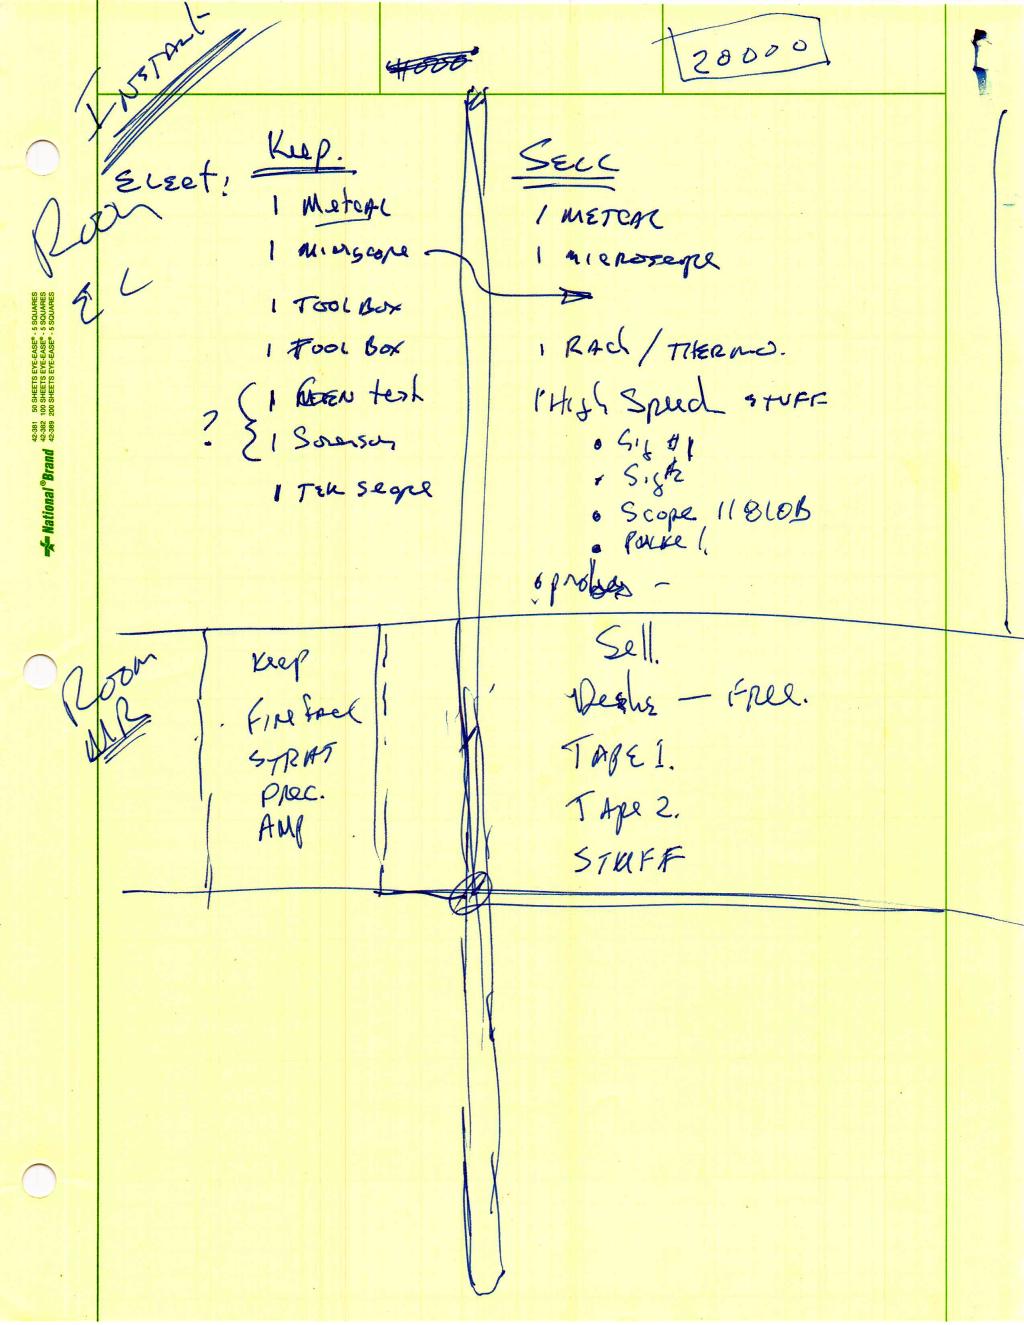 INSTANT
20000
Keep.
SELL
Elect:
Room
EL
1 Metcal
1 METCAL
1 Microscope
1 microscope
1 TOOL BOX
1 TOOL BOX
1 RACK / THERMO.
1 High Speed STUFF
?
1 Sorensen
• Sig #1
• Sig #2
1 Tek Scope
• Scope 11810B
• probes -
Room
MR
Keep
Sell.
Desks - Free.
Fireface
STRAT
TAPE 1.
Prec.
Tape 2.
AMP
STUFF
National® Brand
42-381 50 SHEETS EYE-EASE® - 5 SQUARES
42-382 100 SHEETS EYE-EASE® - 5 SQUARES
42-389 200 SHEETS EYE-EASE® - 5 SQUARES